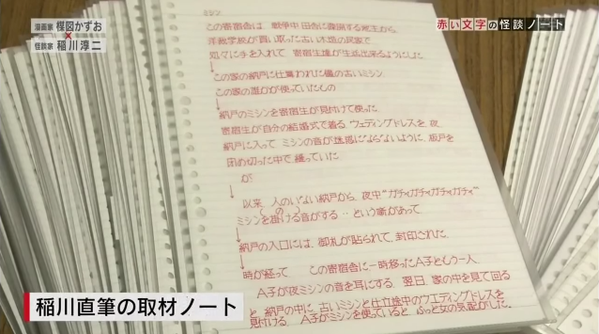 漫画家 楳図かずお
×
怪談家 稲川淳二
赤い文字の怪談ノート
ミシン
この寄宿舎は、戦争中、田舎に疎開する院生から
洋裁学校が買い取った古い木造の民家で
知々に手を入れて 寄宿生達が生活出来るようにした
この家の納戸に仕舞われた儘の古いミシン
この家の誰かが使っていたもの
納戸のミシンを寄宿生が見付けて使った
寄宿生が自分の結婚式で着る、ウェディングドレスを、夜
納戸に入って ミシンの音が迷惑にならないように、板戸を
閉め切った中で縫っていた
が
以来 人のいない納戸から、夜中"ガチィガチィガチィガチィ"
ミシンを掛ける音がする‥という噂があって
納戸の入口には、御札が貼られて、封印された
時が経って この寄宿舎に一時移ったA子ともう一人
A子が夜ミシンの音を耳にする、翌日、家の中を見て回る
と 納戸の中に 古いミシンと仕立途中のウエディングドレスを
見付ける A子がミシンを使っていると ふっと女の気配がした
稲川直筆の取材ノート